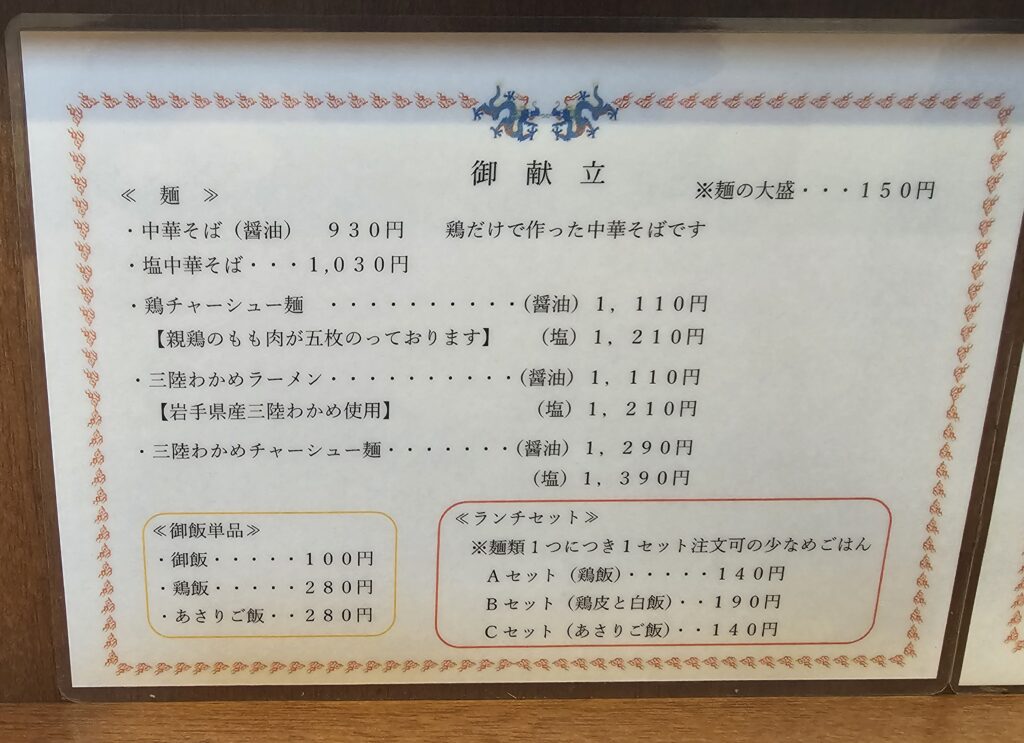 御 献 立
≪ 麺 ≫
※麺の大盛・・・１５０円
・中華そば（醤油） ９３０円 鶏だけで作った中華そばです
・塩中華そば・・・１,０３０円
・鶏チャーシュー麺 ・・・・・・・・・・（醤油）１，１１０円
【親鶏のもも肉が五枚のっております】 （塩）１，２１０円
・三陸わかめラーメン・・・・・・・・・・（醤油）１，１１０円
【岩手県産三陸わかめ使用】 （塩）１，２１０円
・三陸わかめチャーシュー麺・・・・・・・（醤油）１，２９０円
（塩）１，３９０円
≪御飯単品≫
・御飯・・・・・１００円
・鶏飯・・・・・２８０円
・あさりご飯・・２８０円
≪ランチセット≫
※麺類１つにつき１セット注文可の少なめごはん
Ａセット（鶏飯）・・・・・１４０円
Ｂセット（鶏皮と白飯）・・１９０円
Ｃセット（あさりご飯）・・１４０円